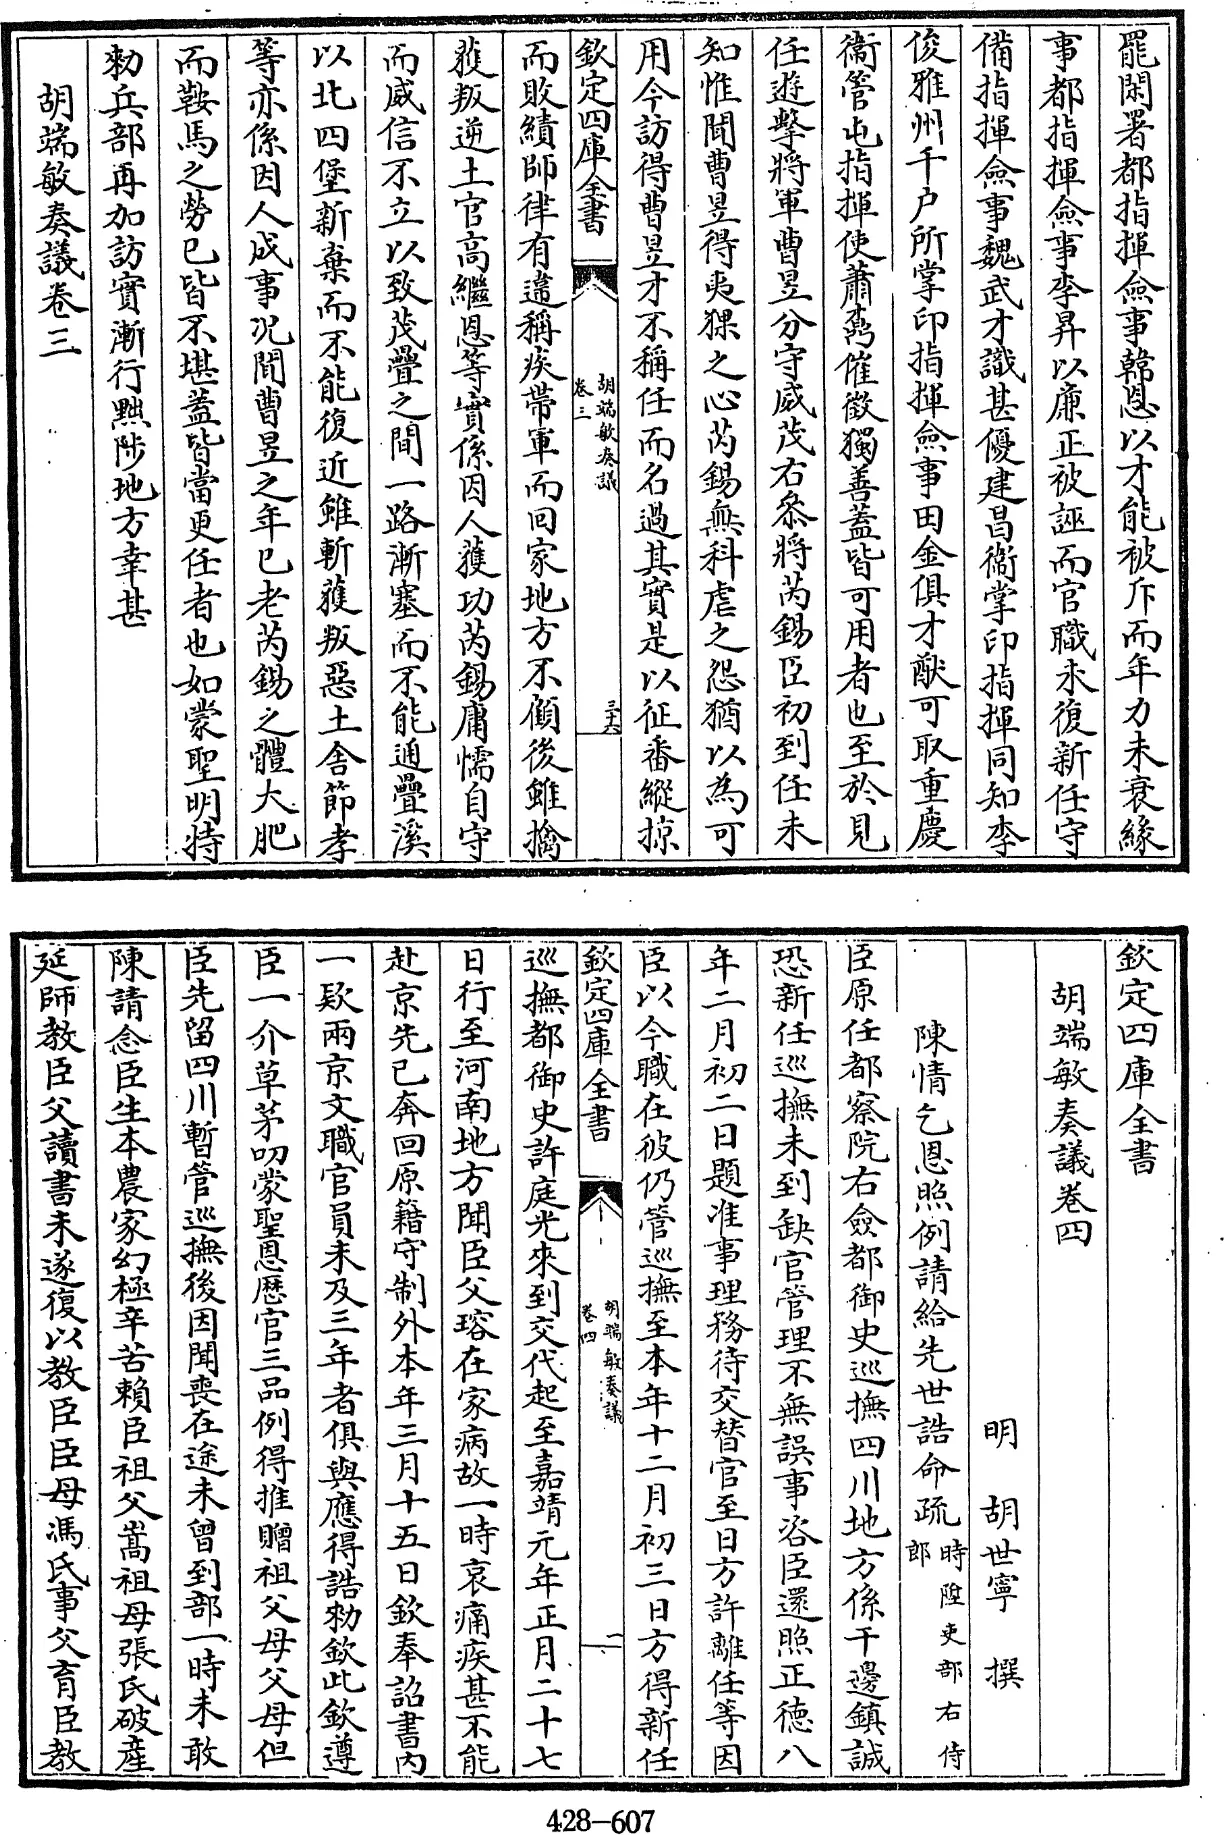 罷閑署都指揮僉事韓恩以才能被斥而年力未衰緣
事都指揮僉事李昇以廉正被誣而官職未復新任守
備指揮僉事魏武才識甚優建昌衞掌印指揮同知李
俊雅州千户所掌印指揮僉事田金俱才猷可取重慶
衞管屯指揮使蕭爲催徵獨善蓋皆可用者也至於見
任遊擊將軍曹昱分守威茂右叅將芮錫臣初到任未
知惟聞曹昱得夷猓之心芮錫無科虐之怨猶以為可
用今訪得曹昱才不稱任而名過其實是以征番縱掠
欽定四庫全書
胡端敏奏議
卷三
三十六
而敗績師律有違稱疾帶軍而回家地方不傾後雖擒
獲叛逆土官高繼恩等實係因人獲功芮錫庸懦自守
而威信不立以致茂疊之間一路漸塞而不能通疊溪
以北四堡新棄而不能復近雖斬獲叛惡土舍節孝
等亦係因人成事况聞曹昱之年已老芮錫之體大肥
而鞍馬之勞已皆不堪蓋皆當更任者也如蒙聖明特
勑兵部再加訪實漸行黜陟地方幸甚
胡端敏奏議卷三
欽定四庫全書
胡端敏奏議卷四
明 胡世寧 撰
陳情乞恩照例請給先世誥命疏 時陞吏部右侍
郎
臣原任都察院右僉都御史巡撫四川地方係干邊鎮誠
恐新任巡撫未到缺官管理不無誤事咨臣還照正德八
年二月初二日題准事理務待交替官至日方許離任等因
臣以今職在彼仍管巡撫至本年十二月初三日方得新任
欽定四庫全書
胡端敏奏議
卷四
一
巡撫都御史許庭光來到交代起至嘉靖元年正月二十七
日行至河南地方聞臣父瑢在家病故一時哀痛疾甚不能
赴京先已奔回原籍守制外本年三月十五日欽奉詔書內
一欵兩京文職官員未及三年者俱與應得誥勑欽此欽遵
臣一介草茅叨蒙聖恩歷官三品例得推贈祖父母父母但
臣先留四川暫管巡撫後因聞喪在途未曾到部一時未敢
陳請念臣生本農家幻極辛苦賴臣祖父嵩祖母張氏破產
延師教臣父讀書未遂復以教臣臣母馮氏事父育臣教
428-607